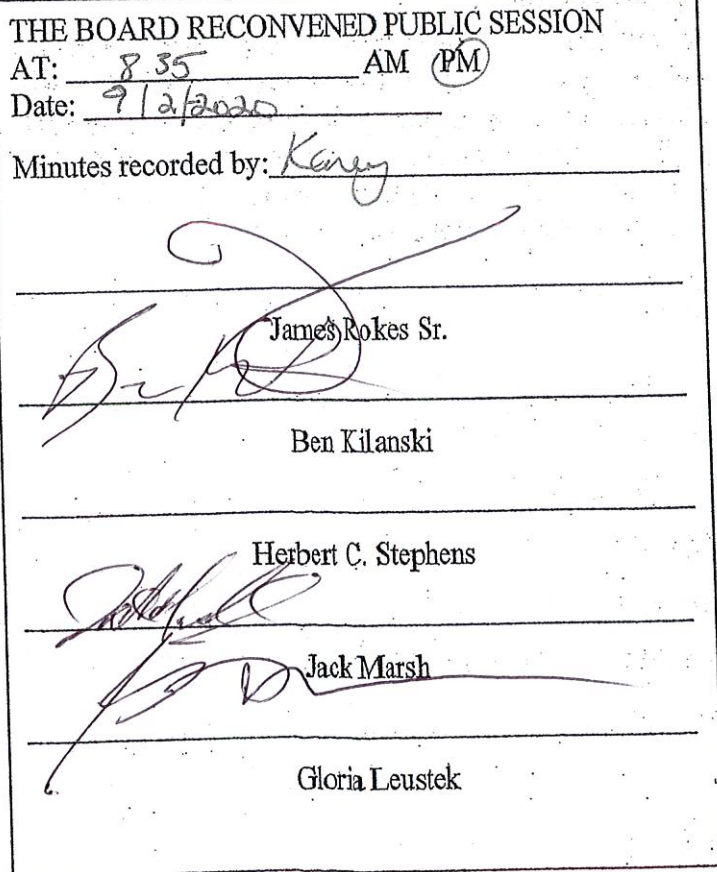 THE BOARD RECONVENED PUBLIC SESSION
AT: 8 35 AM PM
Date: 9/2/2020
Minutes recorded by:
James Rokes Sr.
Ben Kilanski
Herbert C. Stephens
Jack Marsh
Gloria Leustek